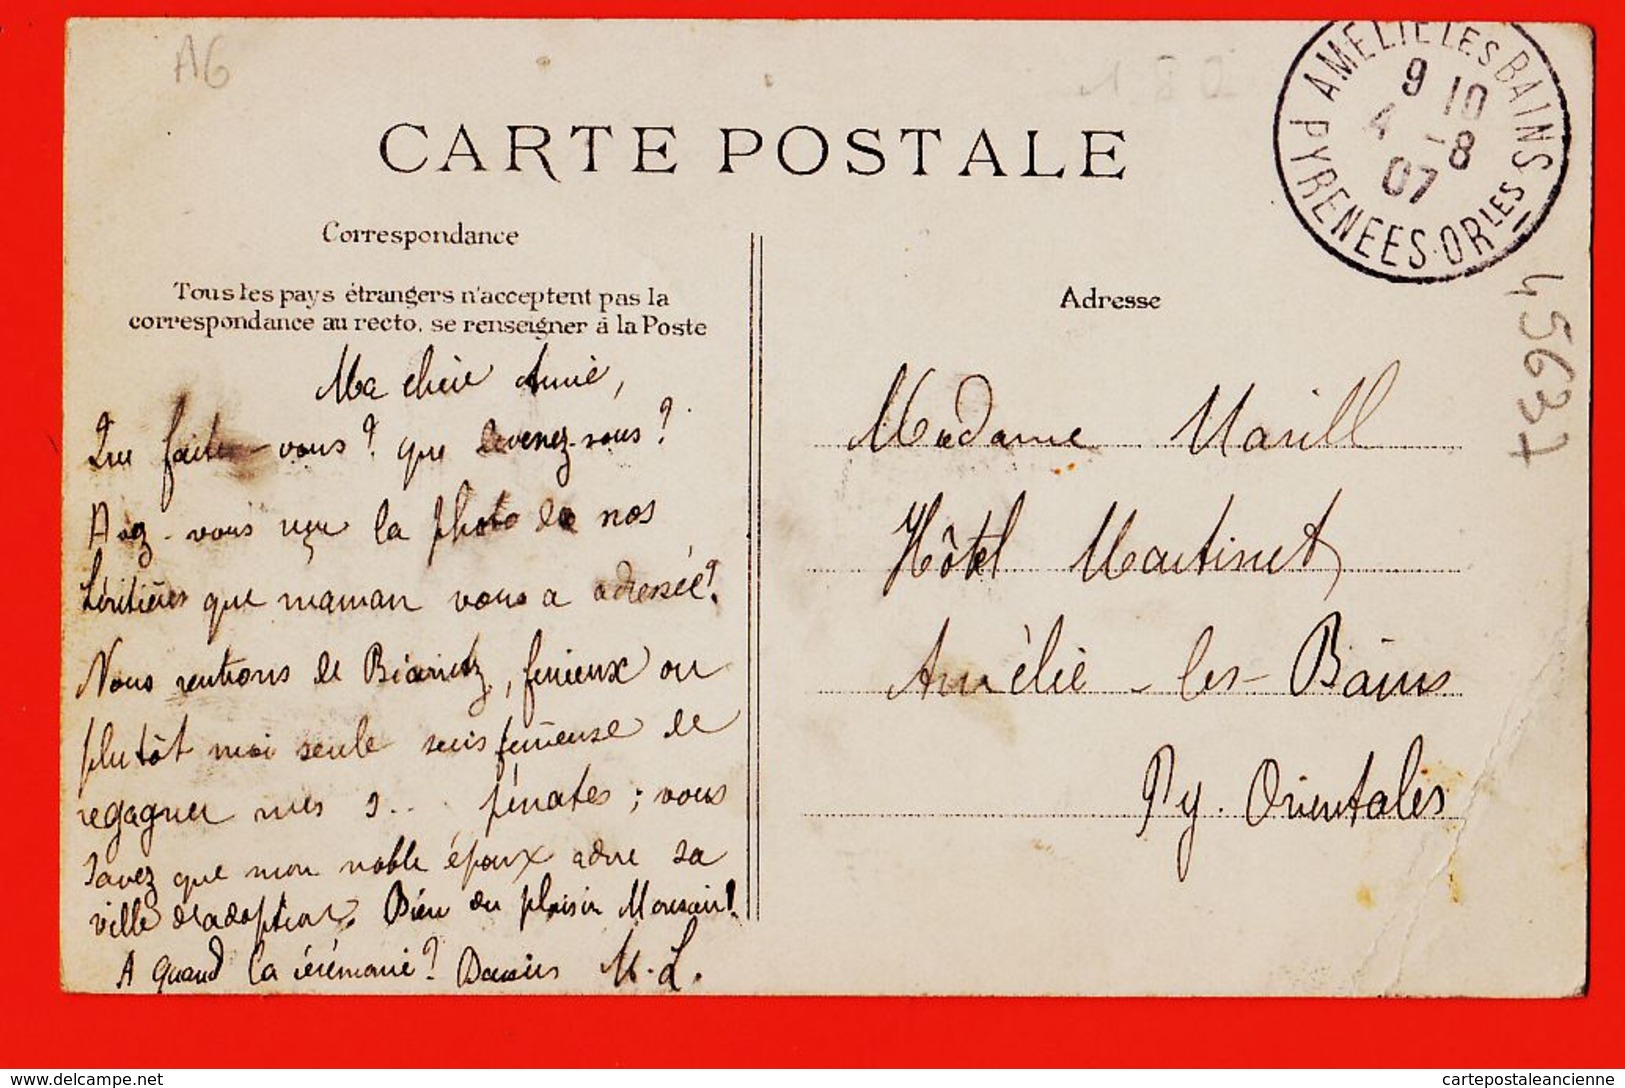 A6
CARTE POSTALE
AMELIE LES BAINS
PYRENEES-ORLES
9 10
4 -8
07
45637
Correspondance
Tous les pays étrangers n'acceptent pas la
correspondance au recto, se renseigner à la Poste
Ma chère Amie,
Que faites-vous? que devenez-vous?
Avez-vous reçu la photo de nos
héritières que maman vous a adressée?
Nous rentrons de Biarritz, furieux ou
plutôt moi seule suis furieuse de
regagner mes 3... pénates; vous
savez que mon noble époux adore sa
ville d'adoption. Bien du plaisir Monsieur!
A quand la cérémonie? M.L.
Adresse
Madame Marill
Hôtel Martinet
Amélie-les-Bains
Py. Orientales
www.delcampe.net
cartepostaleancienne